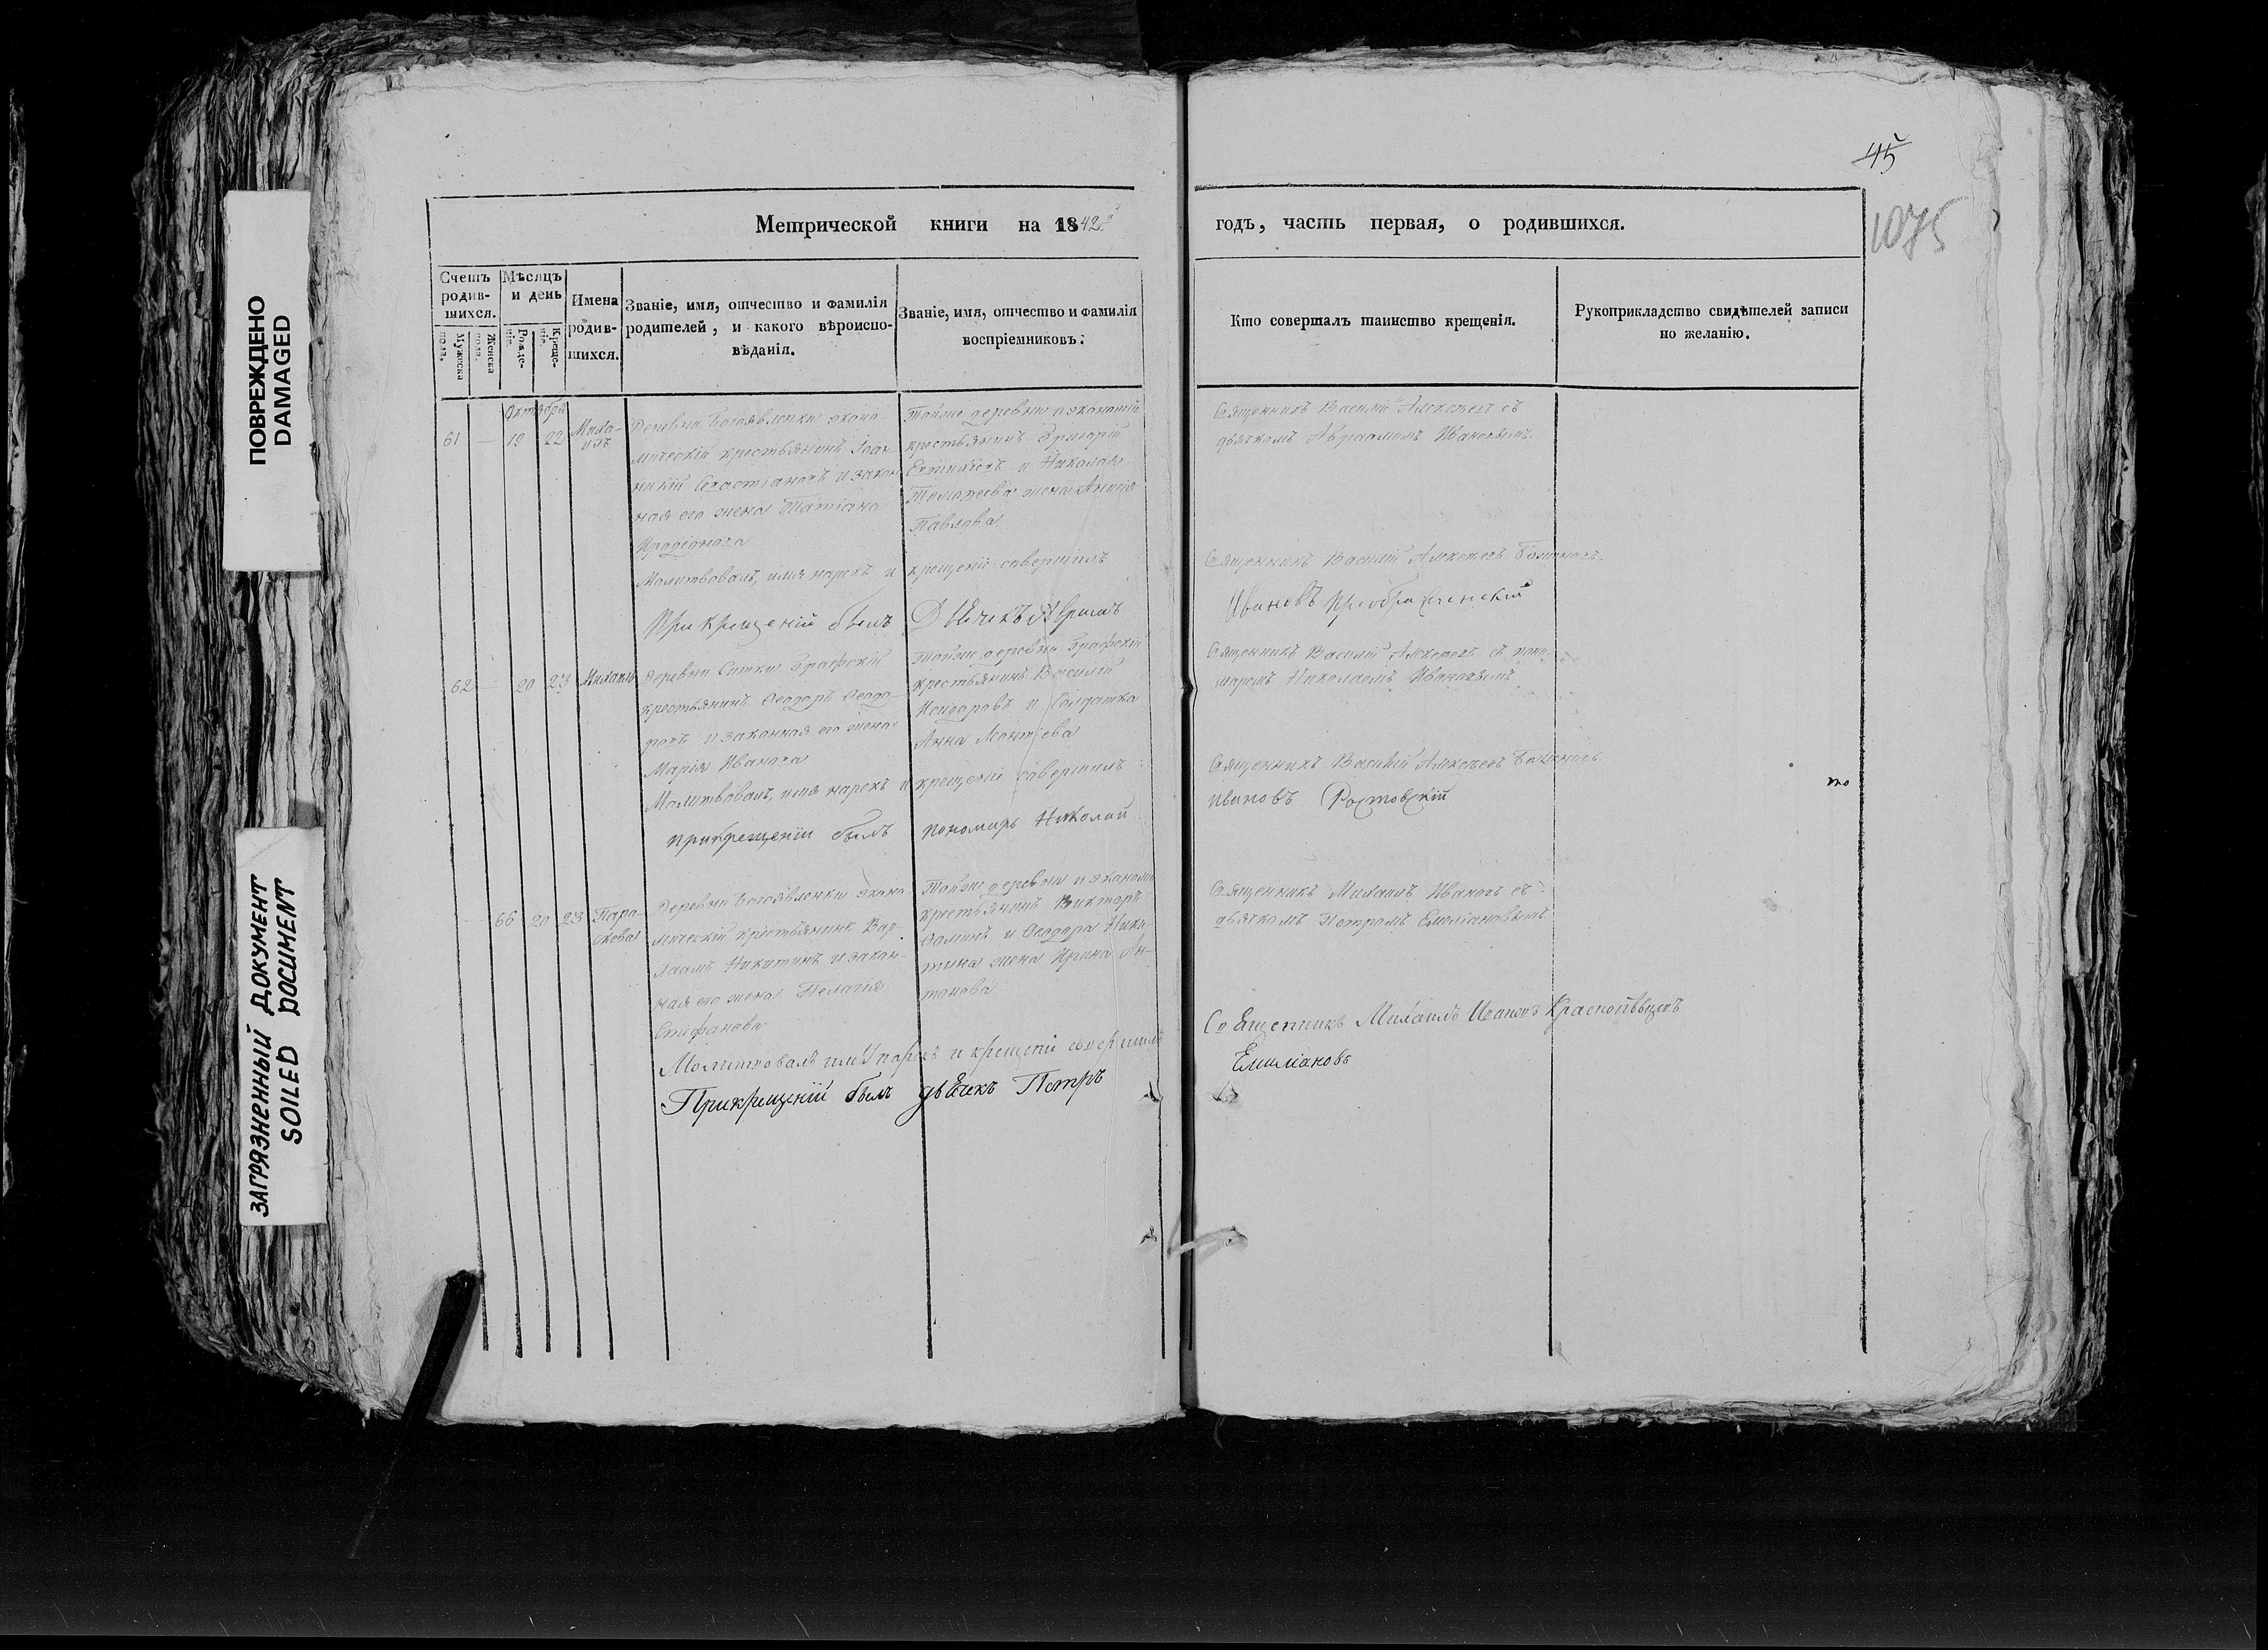 45
1075
ПОВРЕЖДЕНО
DAMAGED
ЗАГРЯЗНЕННЫЙ ДОКУМЕНТ
SOILED DOCUMENT
Метрической книги на 1842й
годъ, часть первая, о родившихся.
Счетъ родившихся.
Мужеска пола.
Женска пола.
Мѣсяцъ и день
Рожденіе.
Крещеніе.
Имена родившихся.
Званіе, имя, отчество и фамилія родителей, и какого вѣроисповѣданія.
Званіе, имя, отчество и фамилія воспріемниковъ.
Кто совершалъ таинство крещенія.
Рукоприкладство свидѣтелей записи по желанію.
Октября
61 — 19 22 Миха-
илъ
Деревни Богоявленки эконо-
мическій крестьянинъ Іоан-
никій Севастіановъ и закон-
ная его жена Татіана
Иродіонова
Тойже деревни и экономіи
крестьянинъ Григорій
и Николая
Тимофеева жена Анисія
Павлова
Священникъ Василій Алексѣевъ съ
дьячкомъ Авраамомъ Ивановымъ.
Молитвовалъ, имя нарекъ и крещеніе совершилъ
Священникъ Василій Алексѣевъ
При крещеніи былъ Дьячекъ Аврамъ
Ивановъ Преображенскій
62 — 20 23 Михаилъ
Деревни Ситки Графскій
крестьянинъ Ѳеодоръ Ѳеодо-
ровъ и законная его жена
Марія Иванова
Тойже деревни Графскій
крестьянинъ Василій
Исидоровъ и Солдатка
Анна Леонтіева
Священникъ Василій Алексѣевъ съ поно-
маремъ Николаемъ Ивановымъ.
Молитвовалъ, имя нарекъ и крещеніе совершилъ
Священникъ Василій Алексѣевъ
прикрещеніи былъ пономарь Николай
Ивановъ Ростовскій
то
— 66 20 23 Пара-
скева
Деревни Богоявленки эконо-
мическій крестьянинъ Вар-
лаамъ Никитинъ и закон-
ная его жена Пелагія
Стефанова
Тойже деревни и экономіи
крестьянинъ Викторъ
Ѳоминъ и Ѳеодора Ники-
тина жена Ирина Ан-
тонова
Священникъ Михаилъ Ивановъ съ
дьячкомъ Петромъ Емеліановымъ
Молитвовалъ имя нарекъ и крещеніе совершилъ
Священникъ Михаилъ Ивановъ Краснопѣвцевъ
Прикрещеніи былъ дьячекъ Петръ
Емиліановъ